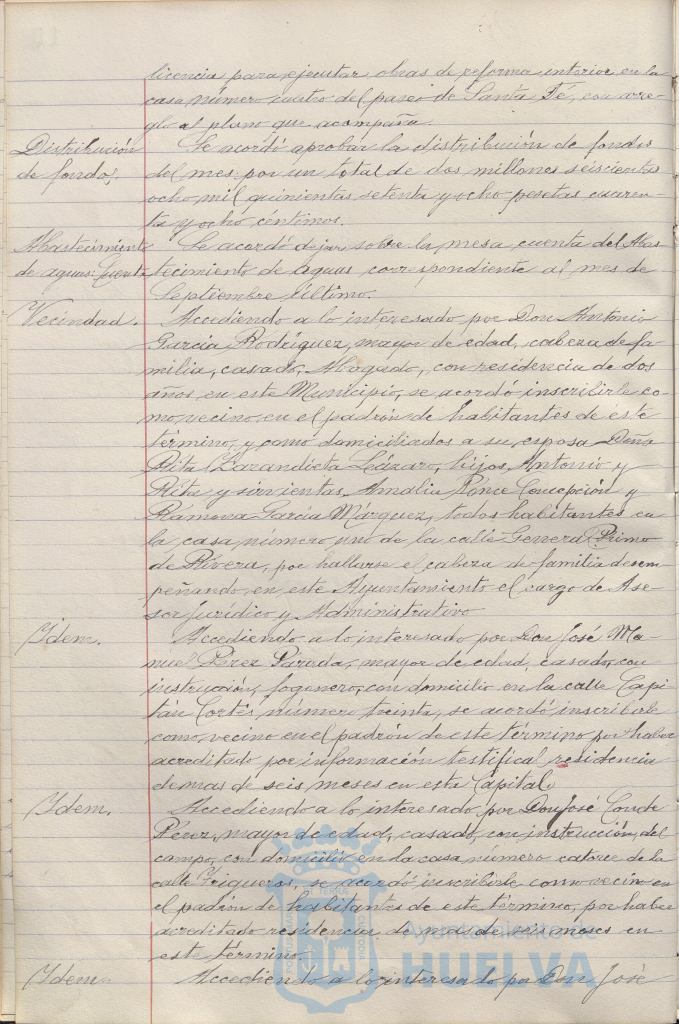 licencia para ejecutar obras de reforma interior en la
casa número cuatro del paseo de Santa Fé, con arre-
glo al plano que acompaña.
Distribución
de fondos,
Se acordó aprobar la distribución de fondos
del mes, por un total de dos millones seiscientas
ocho mil quinientas setenta y ocho pesetas cuaren-
ta y ocho céntimos.
Abastecimiento
de aguas: Cuenta
Se acordó dejar sobre la mesa cuenta del Abas-
tecimiento de aguas correspondiente al mes de
Septiembre último.
Vecindad.
Accediendo a lo interesado por Don Antonio
García Rodríguez, mayor de edad, cabeza de fa-
milia, casado, Abogado, con residencia de dos
años en este Municipio, se acordó inscribirle co-
mo vecino en el padrón de habitantes de este
término, y como domiciliados a su esposa Doña
Rita Zarandieta Lázaro, hijos Antonio y
Rita y sirvientas Amalia Ponce Concepción y
Ramona García Márquez, todos habitantes en
la casa número uno de la calle General Primo
de Rivera, por hallarse el cabeza de familia desem
peñando en este Ayuntamiento el cargo de Ase-
sor jurídico y Administrativo
Ydem.
Accediendo a lo interesado por Don José Ma-
nuel Pérez Parada, mayor de edad, casado, con
instrucción, fogonero, con domicilio en la calle Capi
tán Cortés número treinta, se acordó inscribirle
como vecino en el padrón de este término por haber
acreditado por información testifical residencia
de mas de seis meses en esta Capital.
Ydem.
Accediendo a lo interesado por Don José Conde
Pérez, mayor de edad, casado, con instrucción, del
campo, con domicilio en la casa número catorce de la
calle Trigueros, se acordó inscribirle como vecino en
el padrón de habitantes de este término, por haber
acreditado residencia de mas de seis meses en
este término.
Ydem.
Accediendo a lo interesado por Don José
Ayuntamiento de
HUELVA